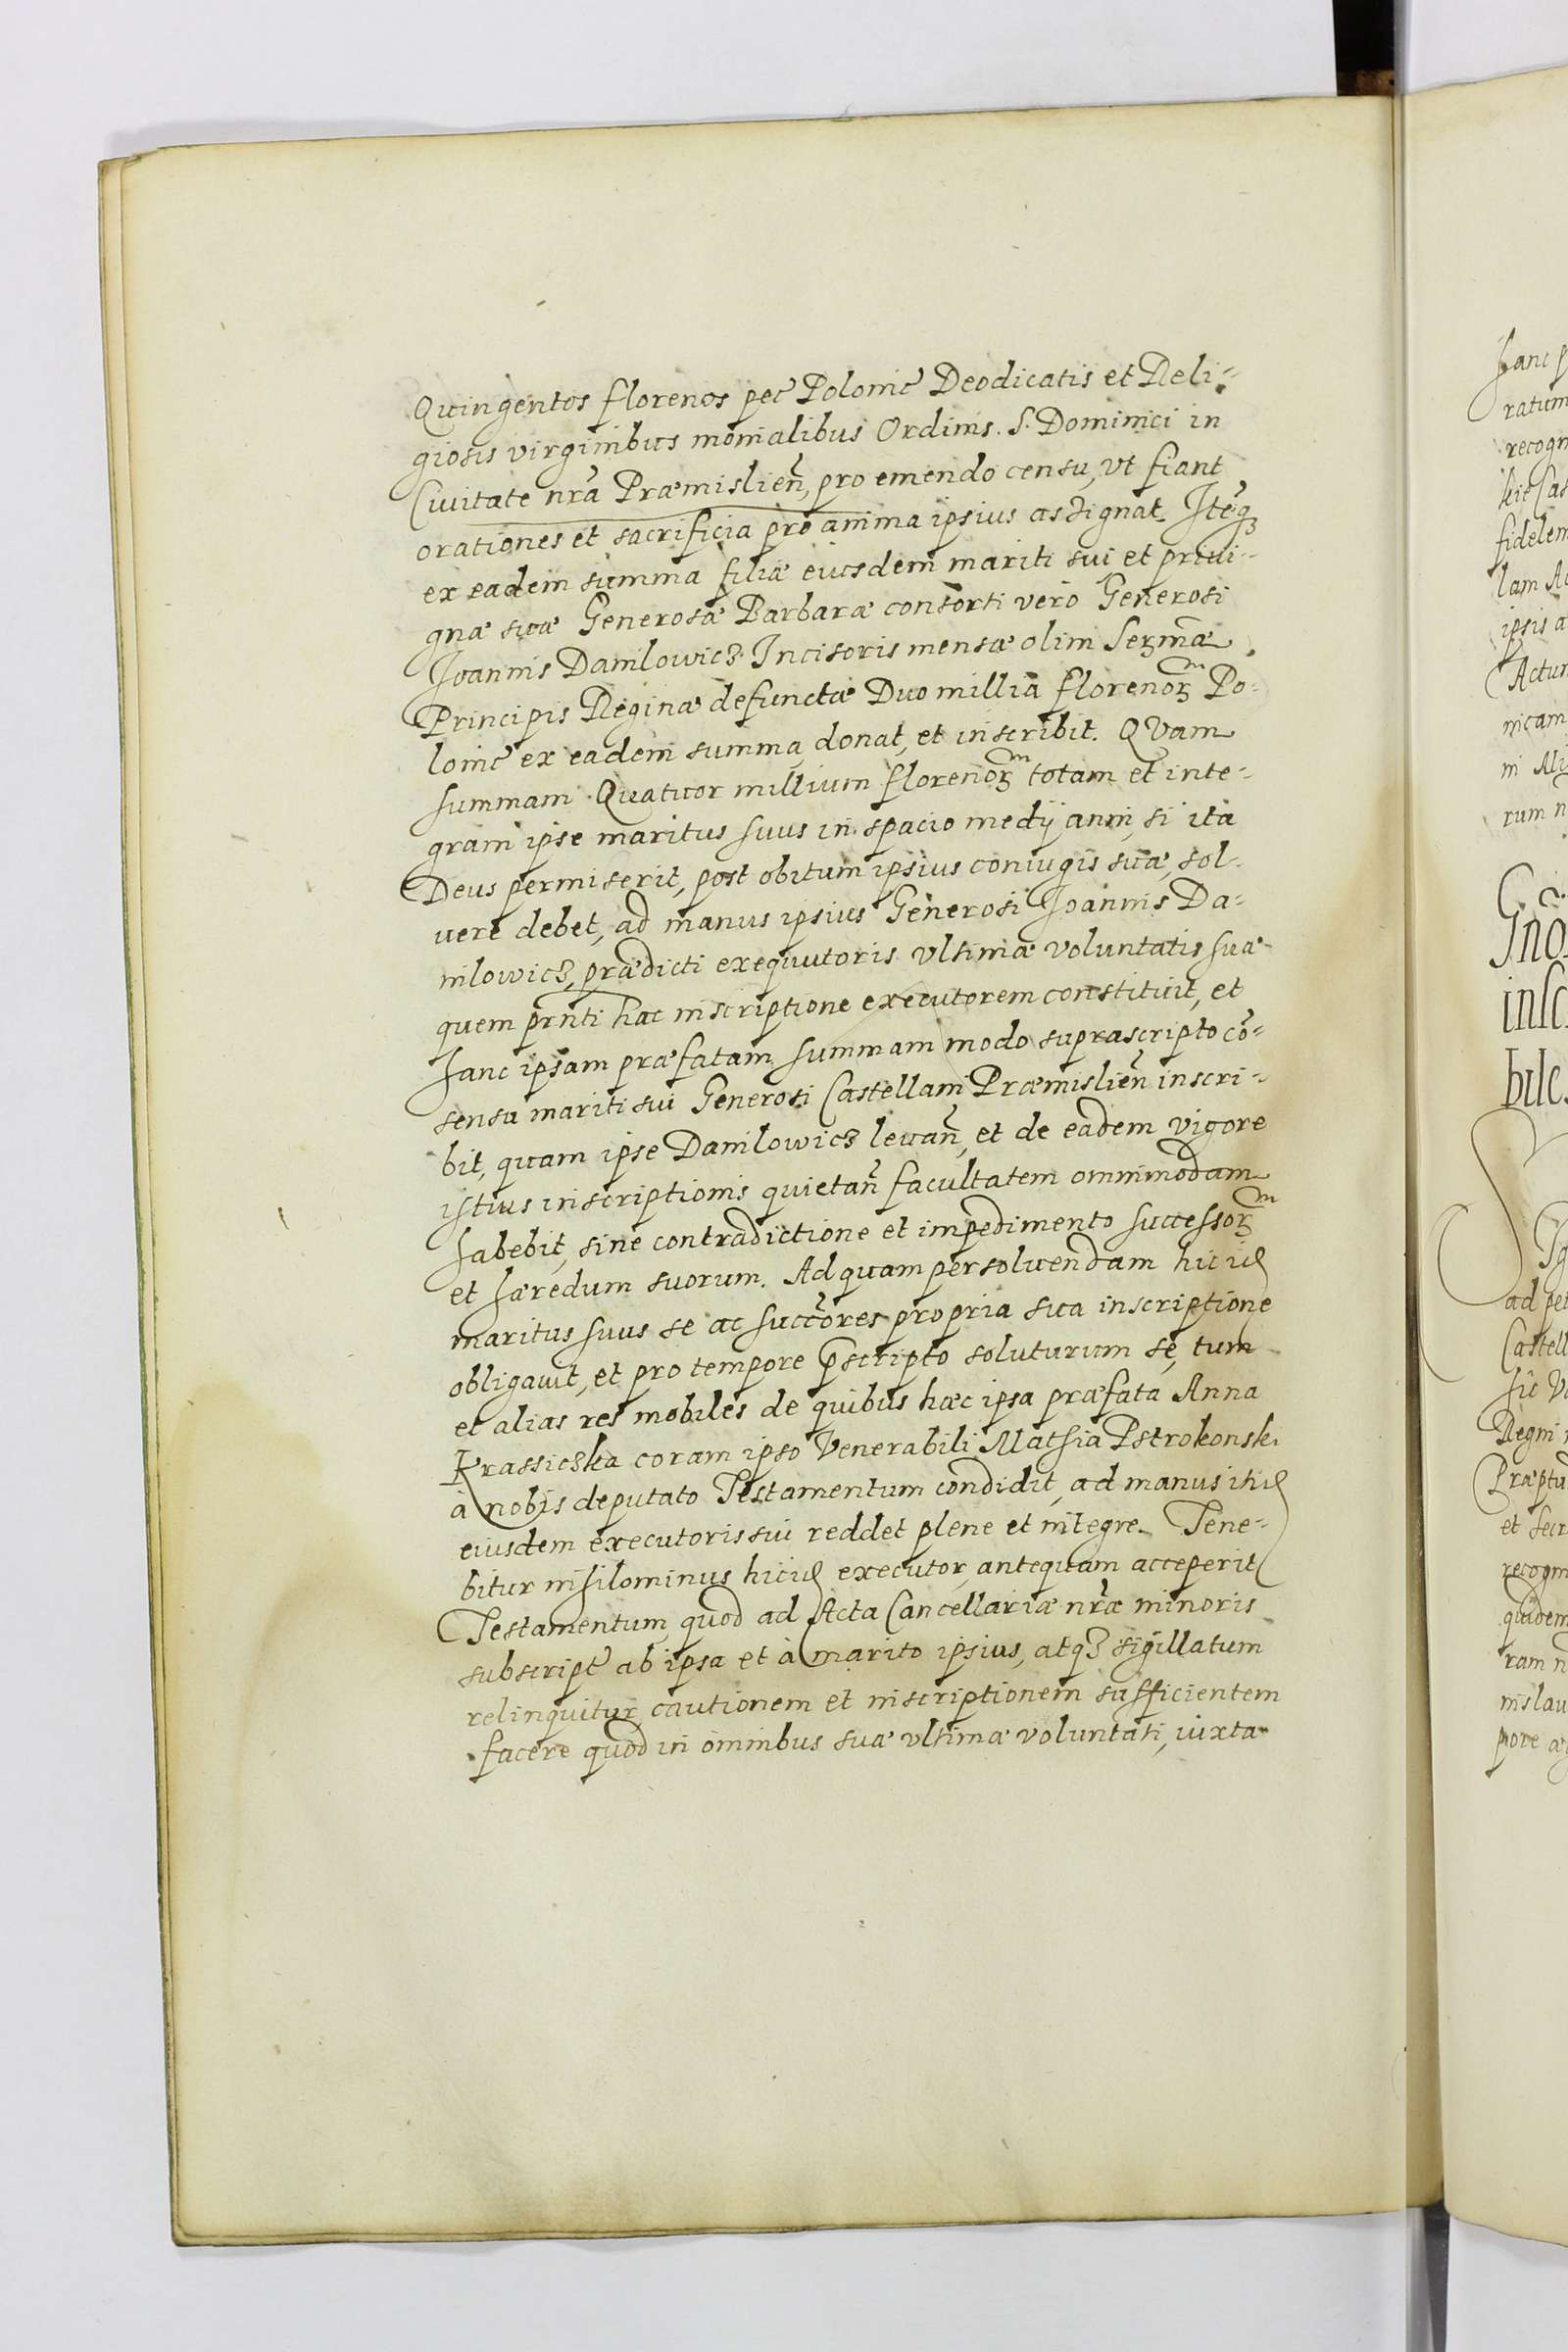 Quingentos florenos pec̃ Polonic̃ Deodicatis et Reli-
giosis virginibus monialibus Ordinis. S. Dominici in
Ciuitate nrã Præmislien̄, pro emendo censu, vt fiant
orationes et sacrificia pro anima ipsius assignat. Itẽqꝫ
ex eadem summa filiæ eiusdem mariti sui et priui-
gnæ suæ Generosæ Barbaræ consorti vero Generosi
Joannis Danilowicz Incisoris mensæ olim Serm̃æ
Principis Reginæ defunctæ Duo millia florenoꝝm Po-
lonic̃ ex eadem summa donat, et inscribit. QVam
summam Quatuor millium florenoꝝm totam et inte-
gram ipse maritus suus in spacio medij anni, si ita
Deus permiserit, post obitum ipsius coniugis suæ, sol-
uere debet, ad manus ipsius Generosi Joannis Da-
nilowicz, prædicti exequutoris vltimæ voluntatis suæ
quem prñti hac inscriptione executorem constituit, et
hanc ipsam præfatam summam modo suprascripto cõ-
sensu mariti sui Generosi Castellani Præmislien̄ inscri-
bit, quam ipse Danilowicz leuan̄, et de eadem vigore
istius inscriptionis quietan̄ facultatem omnimodam
habebit, sine contradictione et impedimento successoꝝm
et hæredum suorum. Ad quam persoluendam hic id
maritus suus se ac succõres propria sua inscriptione
obligauit, et pro tempore p̃scripto soluturum se, tum
et alias res mobiles de quibus hæc ipsa præfata Anna
Krassiczka coram ipso Venerabili Mathia Pstrokonski
à nobis deputato Testamentum condidit, ad manus itid
eiusdem executoris sui reddet plene et integre. Tene-
bitur nihilominus hic id executor, antequam acceperit
Testamentum, quod ad Acta Cancellariæ nræ̃ minoris
subscript̃ ab ipsa et à marito ipsius, atqꝫ sigillatum
relinquitur cautionem et inscriptionem sufficientem
facere quod in omnibus suæ vltimæ voluntati, iuxta
hanc
ratum
recogn
fidelem
lam
ipsis a
Actu
nicam
in
rum n
insc
bile
ad pe
Castell
sic
Regni
et Secr
recogn
quidem
ram n
nislau
pore